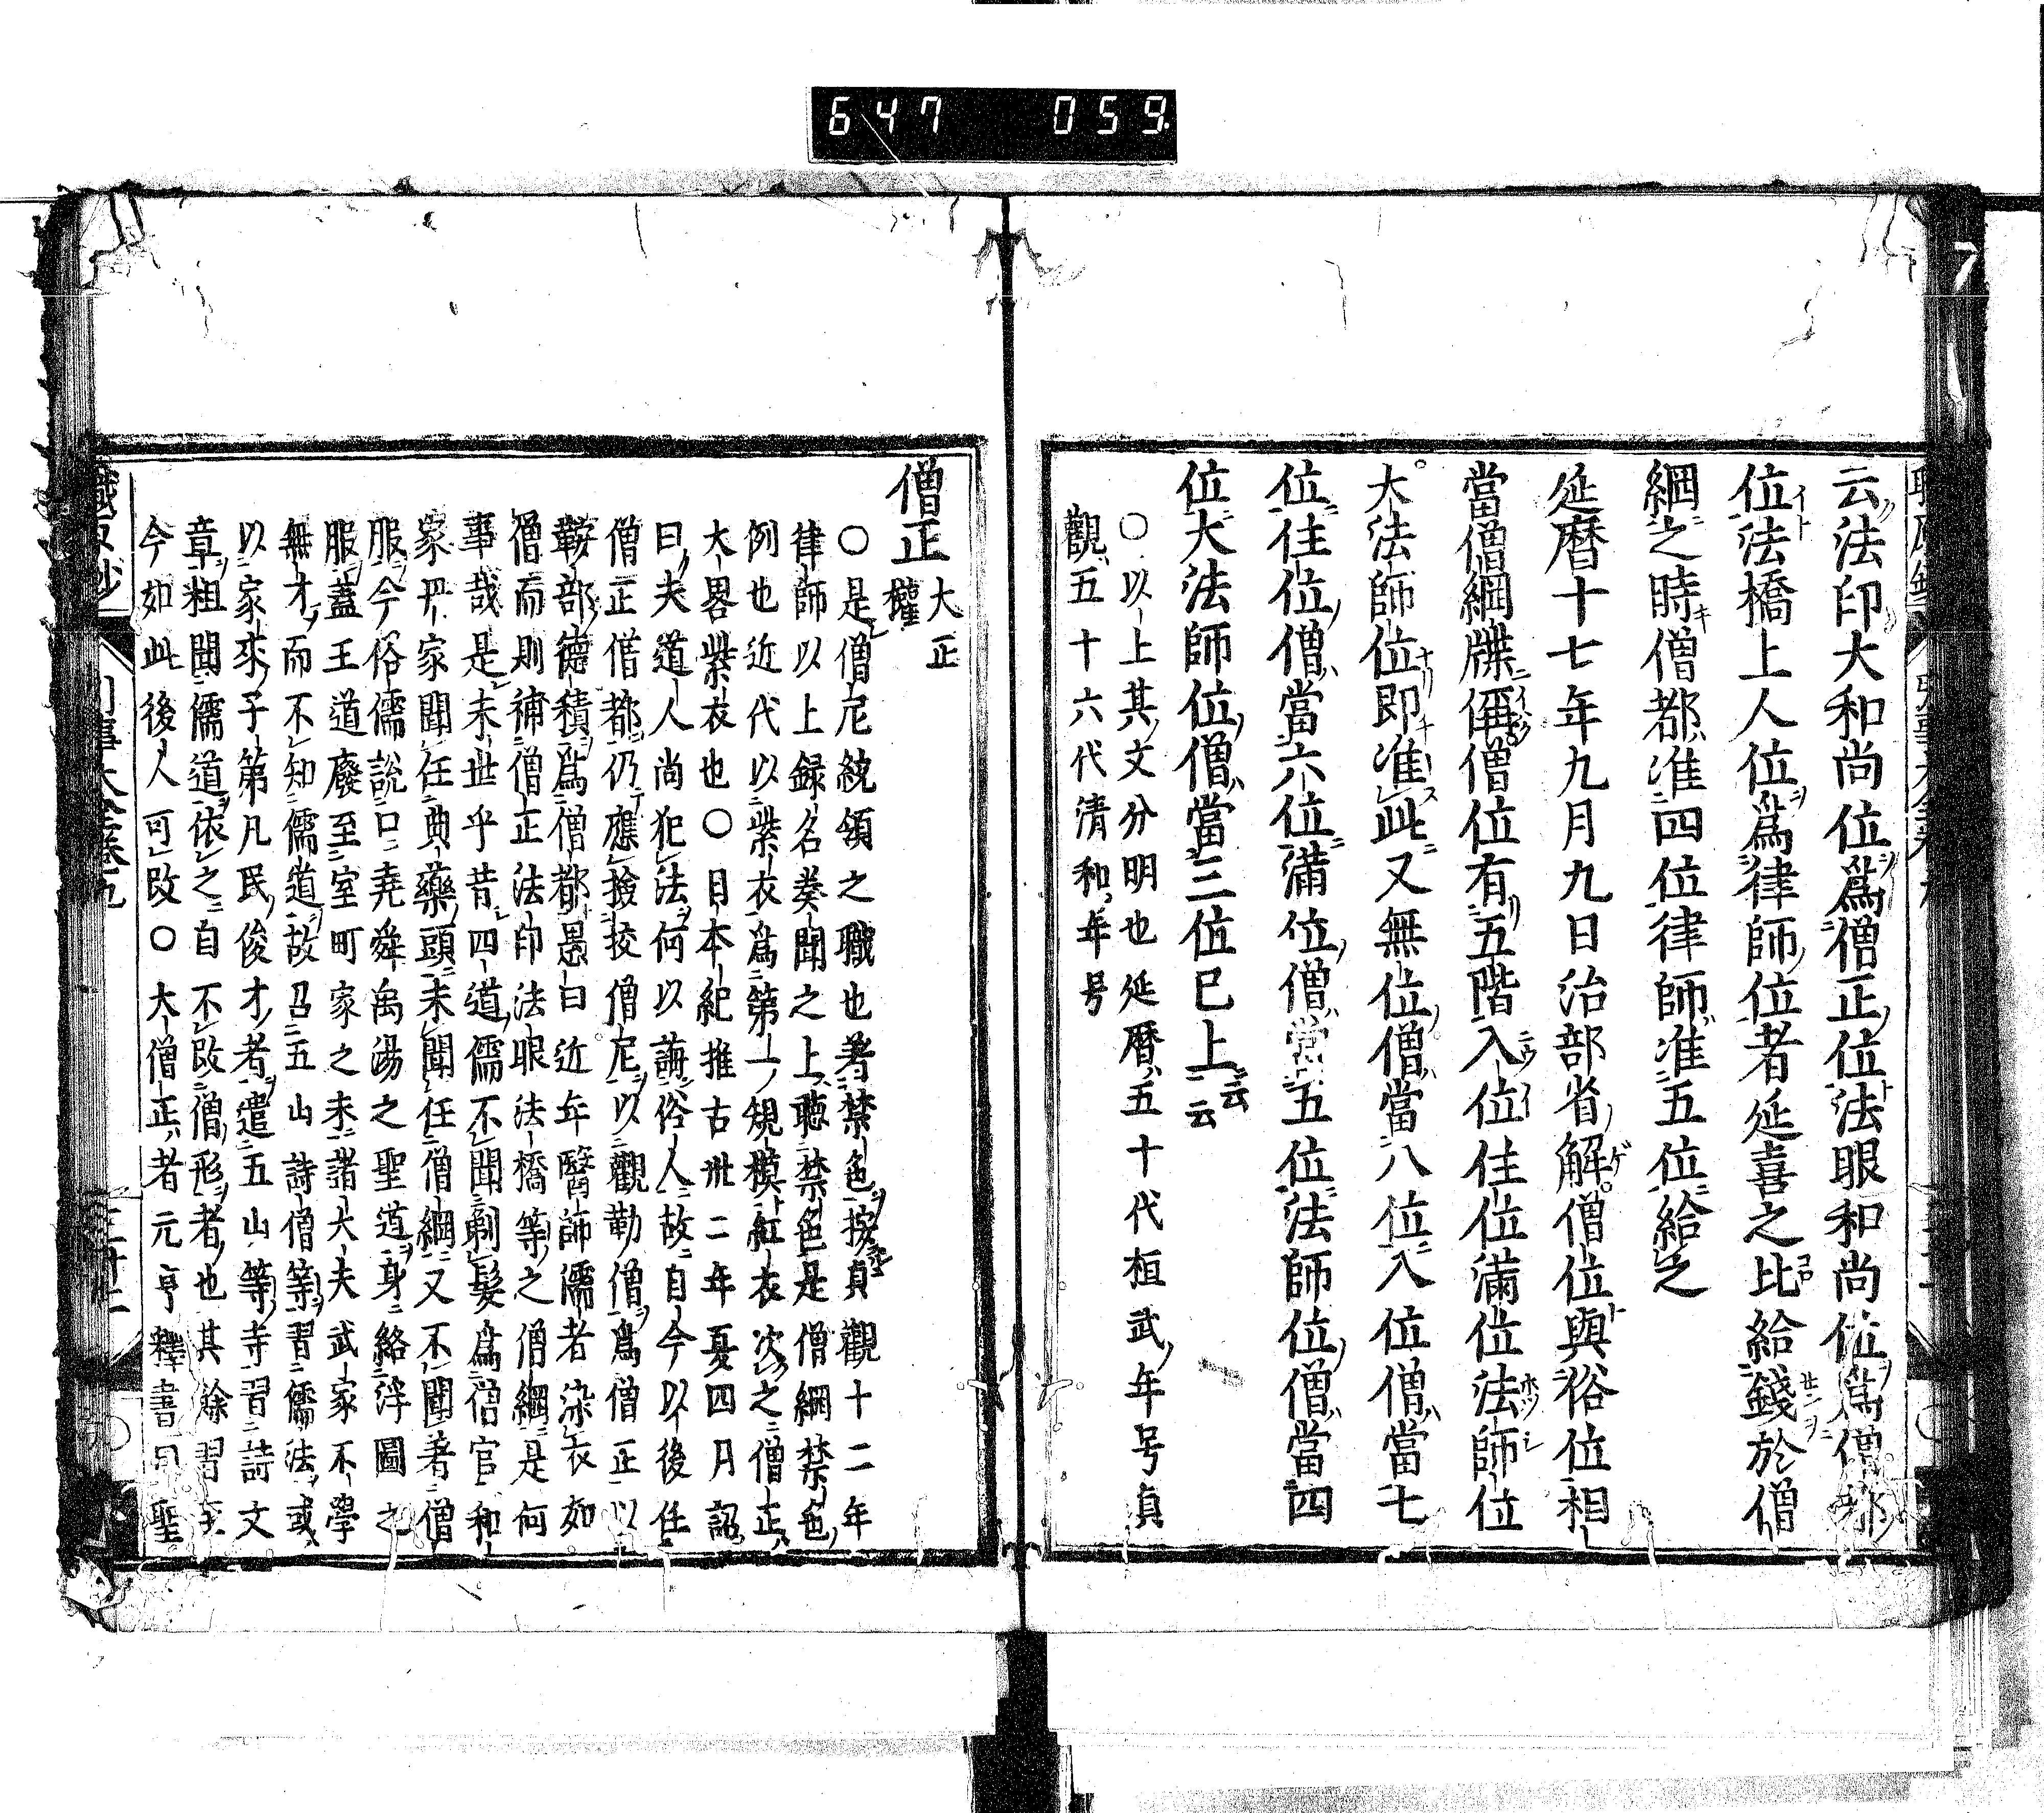 647 059
云法印大和尚位爲僧正位法眼和尚位爲僧都
位法橋上人位爲律師位者延喜之比給錢於僧
綱之時僧都准四位律師准五位給之
延曆十七年九月九日治部省解僧位與俗位相
當僧綱牒偁僧位有五階入位住位滿位法師位
大法師位即准此又無位僧當八位入位僧當七
位住位僧當六位滿位僧當五位法師位僧當四
位大法師位僧當三位已上云云
○以上其文分明也延曆五十代桓武年号貞
觀五十六代清和年号
僧正 大正權
○是僧尼統領之職也着禁色按貞觀十二年
律師以上録名奏聞之上聽禁色是僧綱禁色
例也近代以紫衣爲第一規模紅衣次之僧正
大畧紫衣也○日本紀推古卅二年夏四月詔
曰夫道人尚犯法何以誨俗人故自今以後任
僧正僧都仍應撿挍僧尼以觀勒僧爲僧正以
鞍部德積爲僧都愚曰近年醫師儒者染衣如
僧而則補僧正法印法眼法橋等之僧綱是何
事哉是末世乎昔四道儒不聞剃髮爲僧官和
家丹家聞任典藥頭未聞任僧綱又不聞着僧
服今俗儒説口堯舜禹湯之聖道身絡浮圖之
服蓋王道廢至室町家之末諸大夫武家不學
無才而不知儒道故召五山詩僧等習儒法或
以家來子弟凡民俊才者遣五山等寺習詩文
章粗聞儒道依之自不改僧形者也其餘習
今如此後人可改○大僧正者元亨釋書曰聖